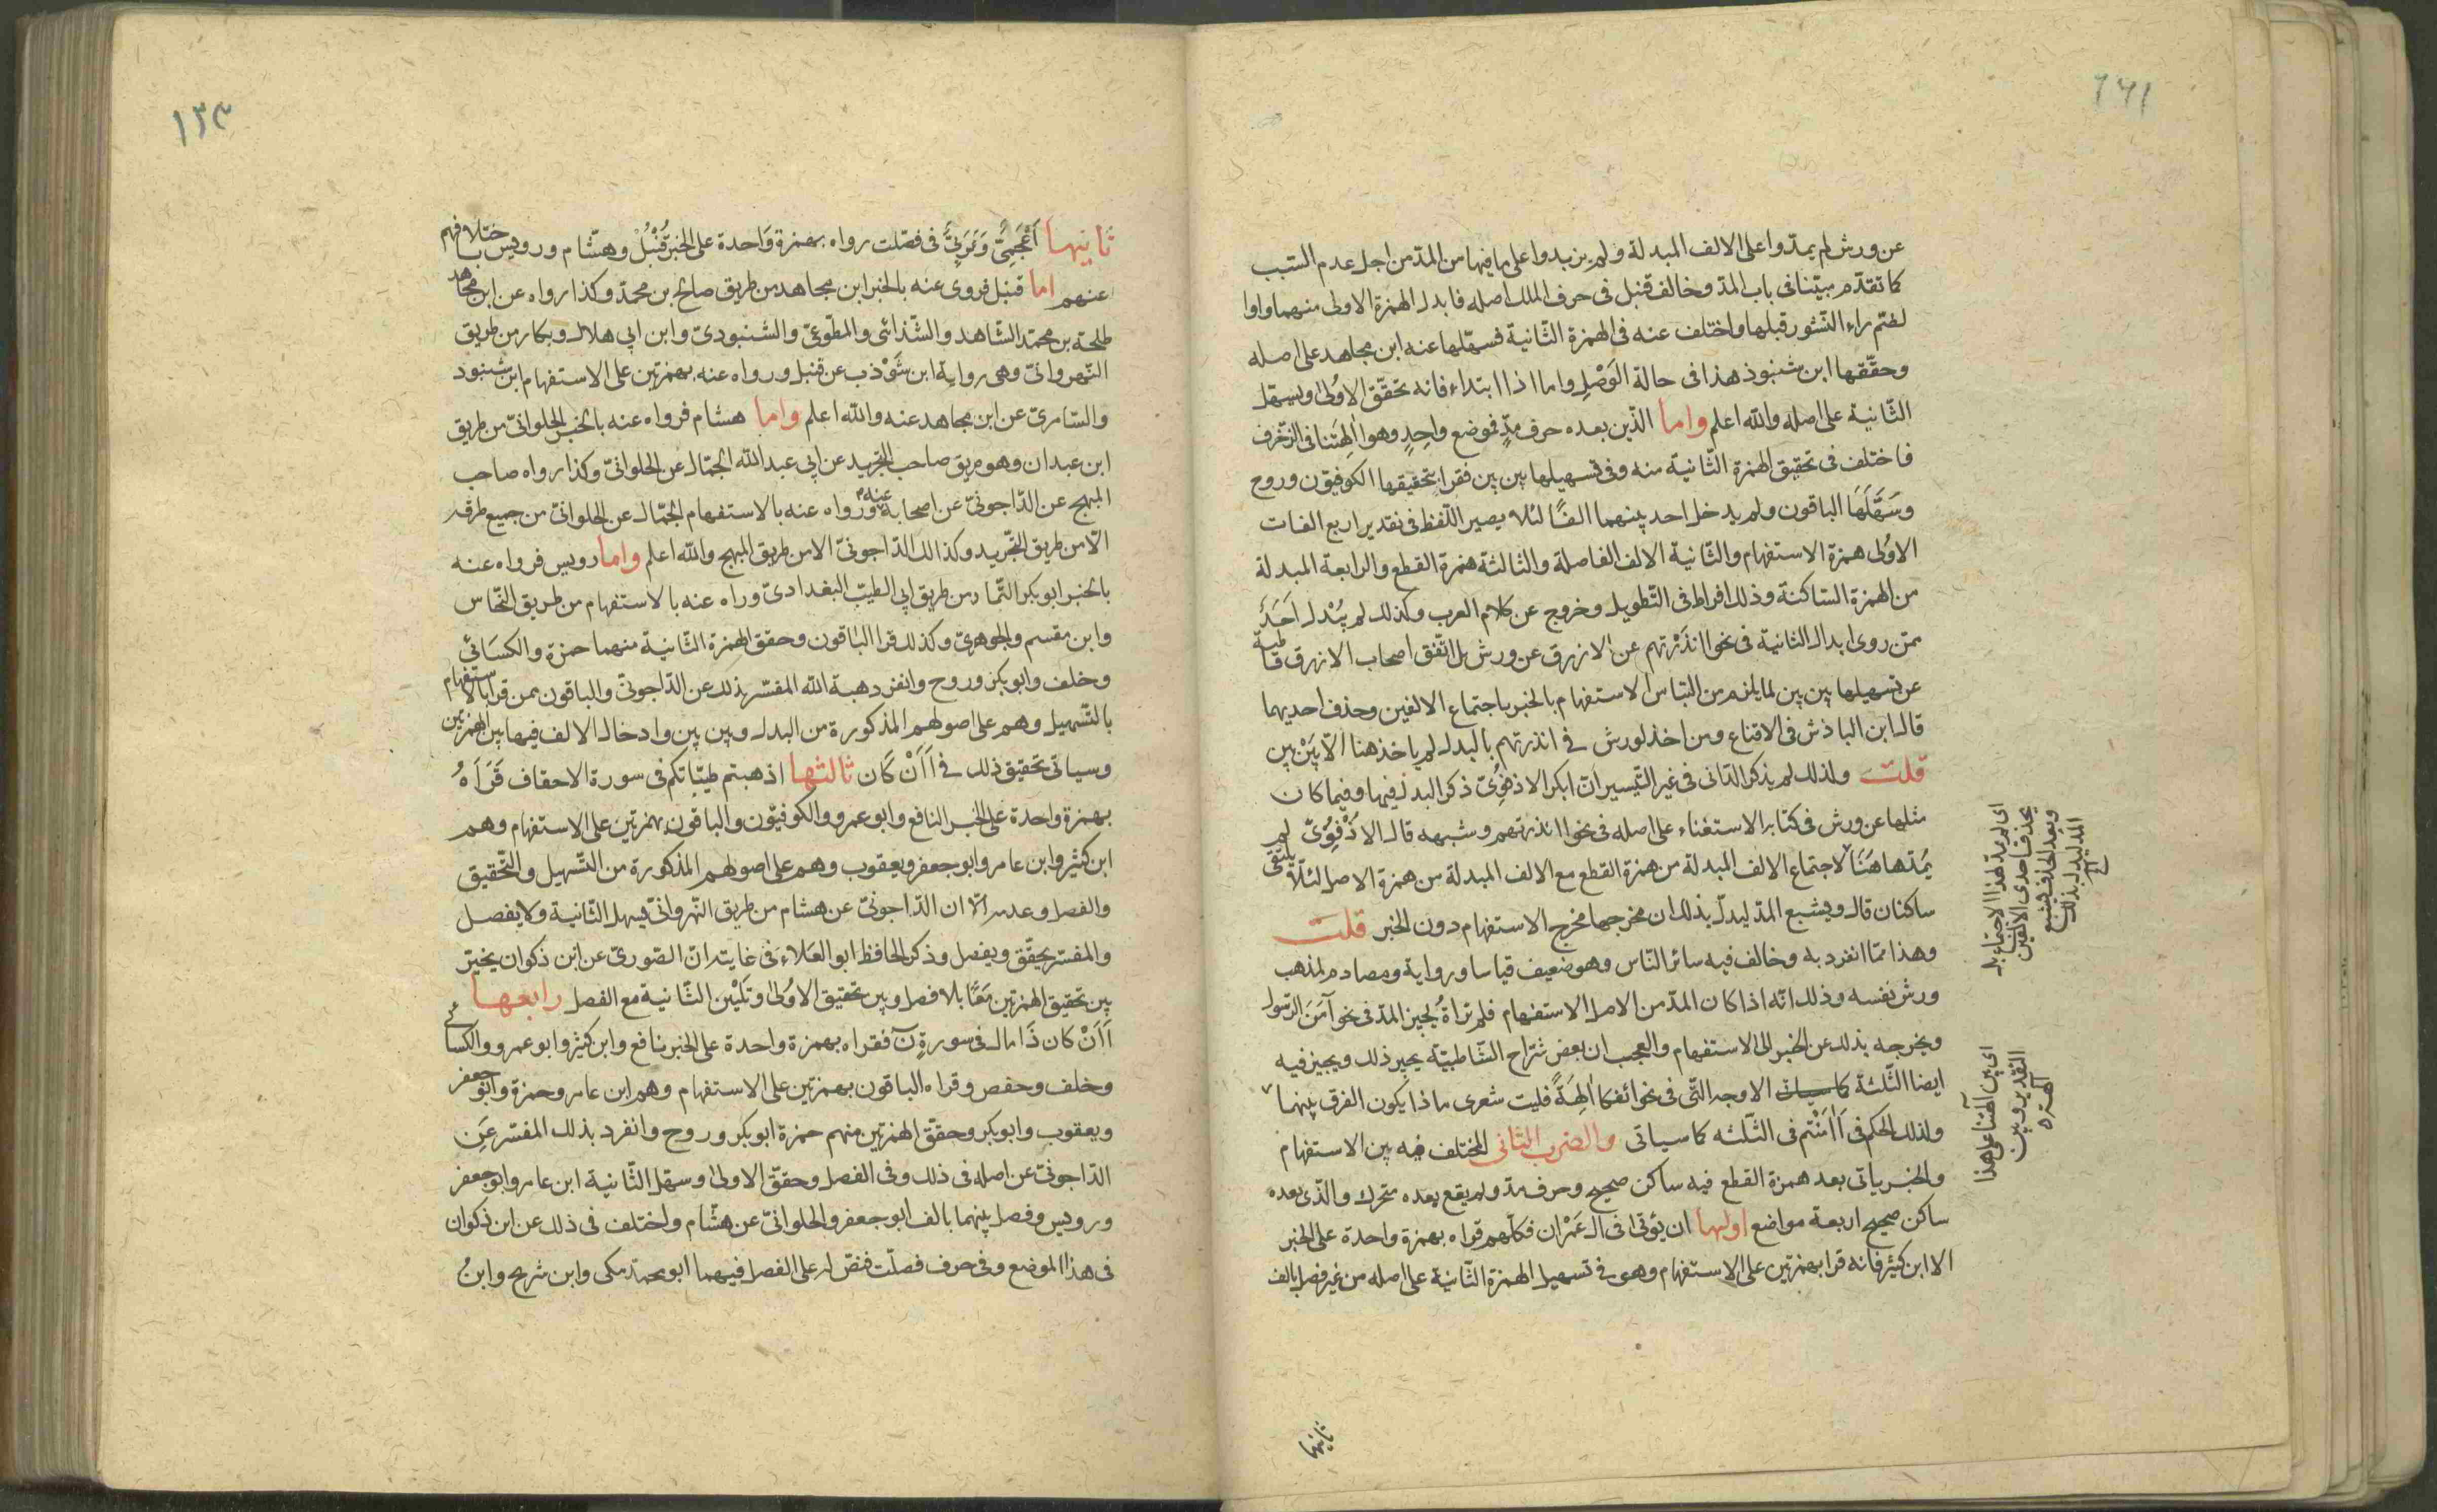 ١٢١
عن ورش لم يمدّوا على الالف المبدلة ولم يزيدوا على ما فيها من المدّ من اجل عدم السّبب
كما تقدّم مبيّنا فى باب المدّ وخالف قنبل فى حرف الملك اصله فابدل الهمزة الاولى منهما واوا
لضمّ راء النّشور قبلها واختلف عنه فى الهمزة الثّانية فسهّلها عنه ابن مجاهد على اصله
وحقّقها ابن شنبوذ هذا فى حالة الوَصْلِ واما اذا ابتداء فانه تحقّق الاوُلىٰ ويسهّل
الثّانية على اصله والله اعلم واما الذّين بعده حرف مدٍّ فموضع واحِدٍ وهو االِهَتنا فى الزّخرف
فاختلف فى تحقيق الهمزة الثّانية منه وفى تسهيلها بين بين فقرا بتحقيقها الكوفيّون وروح
وسَهَّلَهَا الباقون ولم يدخل احد بينهما الفًا لئلا يصير اللّفظ فى تقدير اربع الفات
الاوُلى همزة الاستفهام والثّانية الالف الفاصلة والثالثة همزة القطع والرابعة المبدلة
من الهمزة السّاكنة وذلك افراط فى التّطويل وخروج عن كلام العرب وكذلك لم يُبْدل اَحَدٌ
ممّن روى ابدال الثانية فى نحو اانذَرْتهم عن الازرق عن ورش بل اتّفق اصحاب الازرق قاطبة
عن تسهيلها بين بين لما يلزم من التباس الاستفهام بالخبر باجتماع الالفين وحذف احديهما
قال ابن الباذش فى الاقناع ومن اخذ لورش فى اانذرتهم بالبدل لم ياخذ هنا الّا بَيْنَ بين
قلت ولذلك لم يذكر الدّانى فى غير التّيسير انّ ابا بكر الاذفوىّ ذكر البدل فيها وفيما كان
مثلها عن ورش فى كتابه الاستغناء على اصله فى نحو اانذرتهم وشبهه قال الاَذْفوِىّ لم
يُمَدّهاهُنَا لاجتماع الالف المبدلة من همزة القطع مع الالف المبدلة من همزة الاصل لئلّا يلتقى
ساكنان قال ويشبع المدّ ليدلّ بذلك ان مخرجها مخرج الاستفهام دون الخبر قلت
وهذا ممّا انفرد به وخالف فيه سائر النّاس وهو ضعيف قياسا ورواية ومصادم لمذهب
ورش نفسه وذلك انّه اذا كان المدّ من الاصل الاستفهام فلم نراهُ يُجيز المدّ فى نحو آمَنَ الرّسول
ويخرجه بذلك عن الخبر الى الاستفهام والعجب ان بعض شرّاح الشّاطبيّه يجيز ذلك ويجيز فيه
ايضا الثّلثة كاسياتى الاوجه التّى فى نحو ائفكا اٰلِهَةً فليت شعرى ماذا يكون الفرق بينهما
ولذلك الحكم فى اَاٰمَنْتم فى الثّلثه كما سياتى والضرب الثّانى المختلف فيه بين الاستفهام
والخبر ياتى بعد همزة القطع فيه ساكن صحيح وحرف مدّ ولم يقع بعده متحرك والّذى بعده
ساكن صحيح اربعة مواضع اولها ان يؤتىٰ فى ال عِمْرٰان فكلّهم قراه بهمزة واحدة على الخبر
الا ابن كثير فانه قرا بهمزتين على الاستفهام وهو فى تسهيل الهمزة الثّانية على اصله من غير فصل بالف
اى لم يمد لهذا الاجتماع بل
يحذف احدى الالفين
وبعد الحذف يشبع
المدّ ليدل بذلك
اى بين آلهتنا على هذا
التقدير وبين
آلهة
ثانيها
١٣٣
ثَانيهـا اَعْجَمِىٌّ وَعَرَبِىٌّ فى فصّلت رواه بهمزة وَاحدة على الخبر قُنْبُلْ وهشّام ورويس باختلافهم
عنهم اما قنبل فروى عنه بالخبر ابن مجاهد من طريق صالح بن محمّد وكذا رواه عن ابن مجاهد
طلحة بن محمّد الشّاهد والشّذائى والمطّوعىّ والشنبوذىّ وابن ابى هلال وبكار من طريق
النّهروانىّ وهى رواية ابن شَوْذب عن قنبل ورواه عنه بهمزتين على الاستفهام ابن شنبوذ
والسّامرىّ عن ابن مجاهد عنه والله اعلم واما هشام فرواه عنه بالخبر الحلوانىّ من طريق
ابن عبدان وهو طريق صاحب التجريد عن ابى عبد الله الجمّال عن الحلوانىّ وكذا رواه صاحب
المبهج عن الدّاجونىّ عن اصحابه عنهم ورواه عنه بالاستفهام الجمّال عن الحلوانىّ من جميع طرقه
الّا من طريق التّجريد وكذلك الدّاجونىّ الا من طريق المبهج والله اعلم واما رويس فرواه عنه
بالخبر ابو بكر التّمار من طريق ابى الطيّب البغدادىّ وراه عنه بالاستفهام من طريق النّخّاس
وابن مقسم والجوهرىّ وكذلك قرا الباقون وحقق الهمزة الثّانية منهما حمزة والكسَائى
وخلف وابو بكر وروح وانفرد هبة الله المفسّر بذلك عن الدّاجونىّ والباقون ممن قرا بالاستفهام
بالتّسهيل وهم على اصولهم المذكورة من البدل وبين بين وادخال الالف فيها بين الهمزتين
وسياتى تحقيق ذلك فى اَاَنْ كَان ثالثها اذهبتم طيّباتكم فى سورة الاحقاف قَرَاَهُ
بهمزة واحدة على الخبر النافع وابو عمرو والكوفيّون والباقون بهمزتين على الاستفهام وهم
ابن كثير وابن عامر وابو جعفر ويعقوب وهم على اصولهم المذكورة من التّسهيل والتّحقيق
والفصل وعدمه الّا ان الدّاجونىّ عن هشام من طريق النّهروانىّ يسهل الثّانية ولا يفصل
والمفسّر يحقّق ويفصل وذكر الحافظ ابو العَلاء فى غايته انّ الصّورىّ عن ابن ذكوان يخيّر
بين تحقيق الهمزتين مَعًا بلا فصل وبين تحقيق الاوُلىٰ وتَليْين الثّانية مع الفصل رابعها
اَاَنْ كان ذَا مال فى سورة نٓ فقراه بهمزة واحدة على الخبر نافع وابن كثير وابو عمرو والكسائى
وخلف وحفص وقراه الباقون بهمزتين على الاستفهام وهم ابن عامر وحمزة وابو جعفر
ويعقوب وابو بكر وحقّق الهمزتين منهم حمزة ابو بكر وروح وانفرد بذلك المفسّر عَنِ
الدّاجونىّ عن اصله فى ذلك وفى الفصل وحقّق الاولىٰ وسهّل الثّانية ابن عامر وابو جعفر
ورويس وفصل بينهما بالف ابو جعفر والحلوانىّ عن هشّام واختلف فى ذلك عن ابن ذكوان
فى هذا الموضع وفى حرف فصلّت فنصّ له على الفصل فيهما ابو محمّد مكى وابن شريح وابنُ